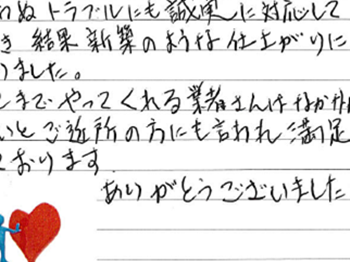 わぬトラブルにも誠実に対応して
き 結果 新築のような仕上がりに
りました。
こまでやってくれる業者さんはなか
いとご近所の方にも言われ 満足
ております
ありがとうございました